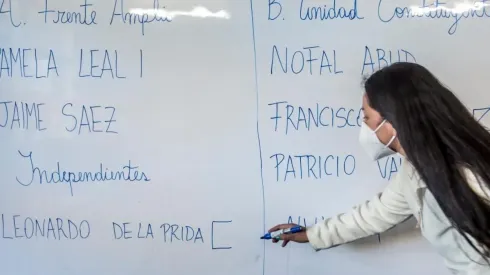 A. Frente Amplio
PAMELA LEAL I
JAIME SAEZ
Independientes
LEONARDO DE LA PRIDA [
B. Unidad Constituyente
NOFAL ABUD
FRANCISC
PATRICIO VA